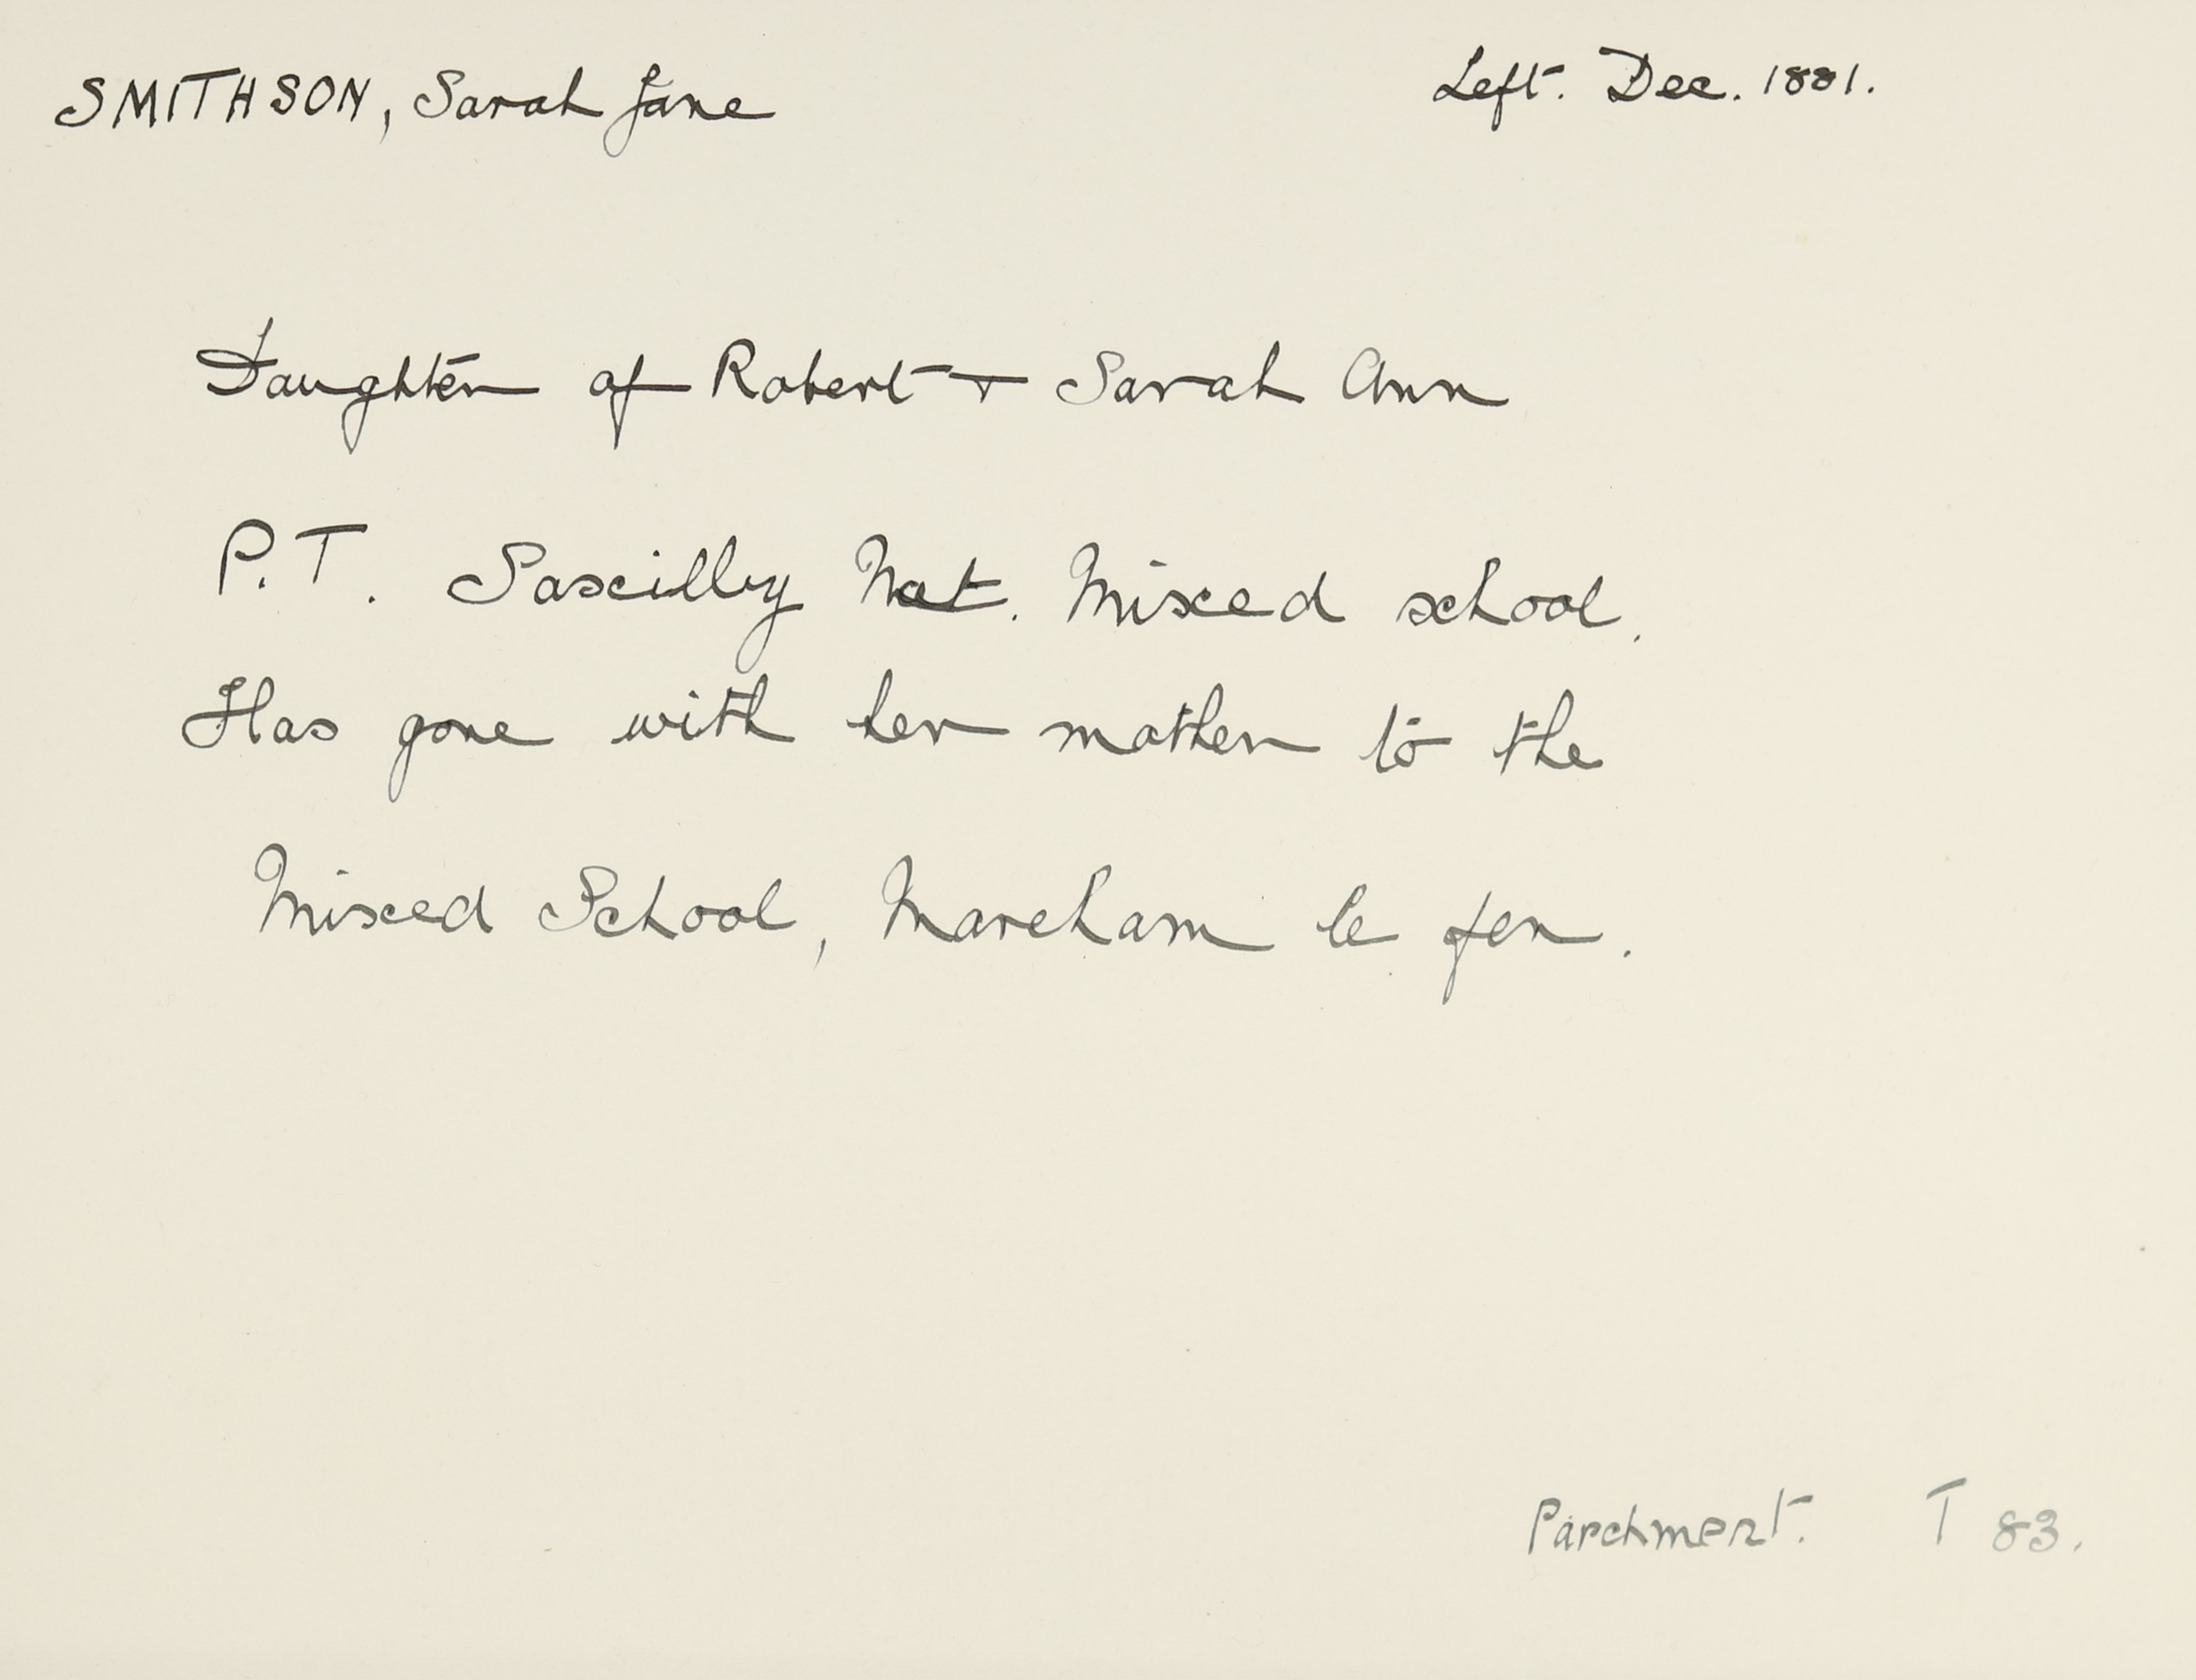 SMITHSON, Sarah Jane Left. Dec. 1881.
Daughter of Robert + Sarah Ann
P.T. Saxilby Nat. Mixed school.
Has gone with her mother to the
Mixed School, Mareham le fen.
Parchment. T 83.